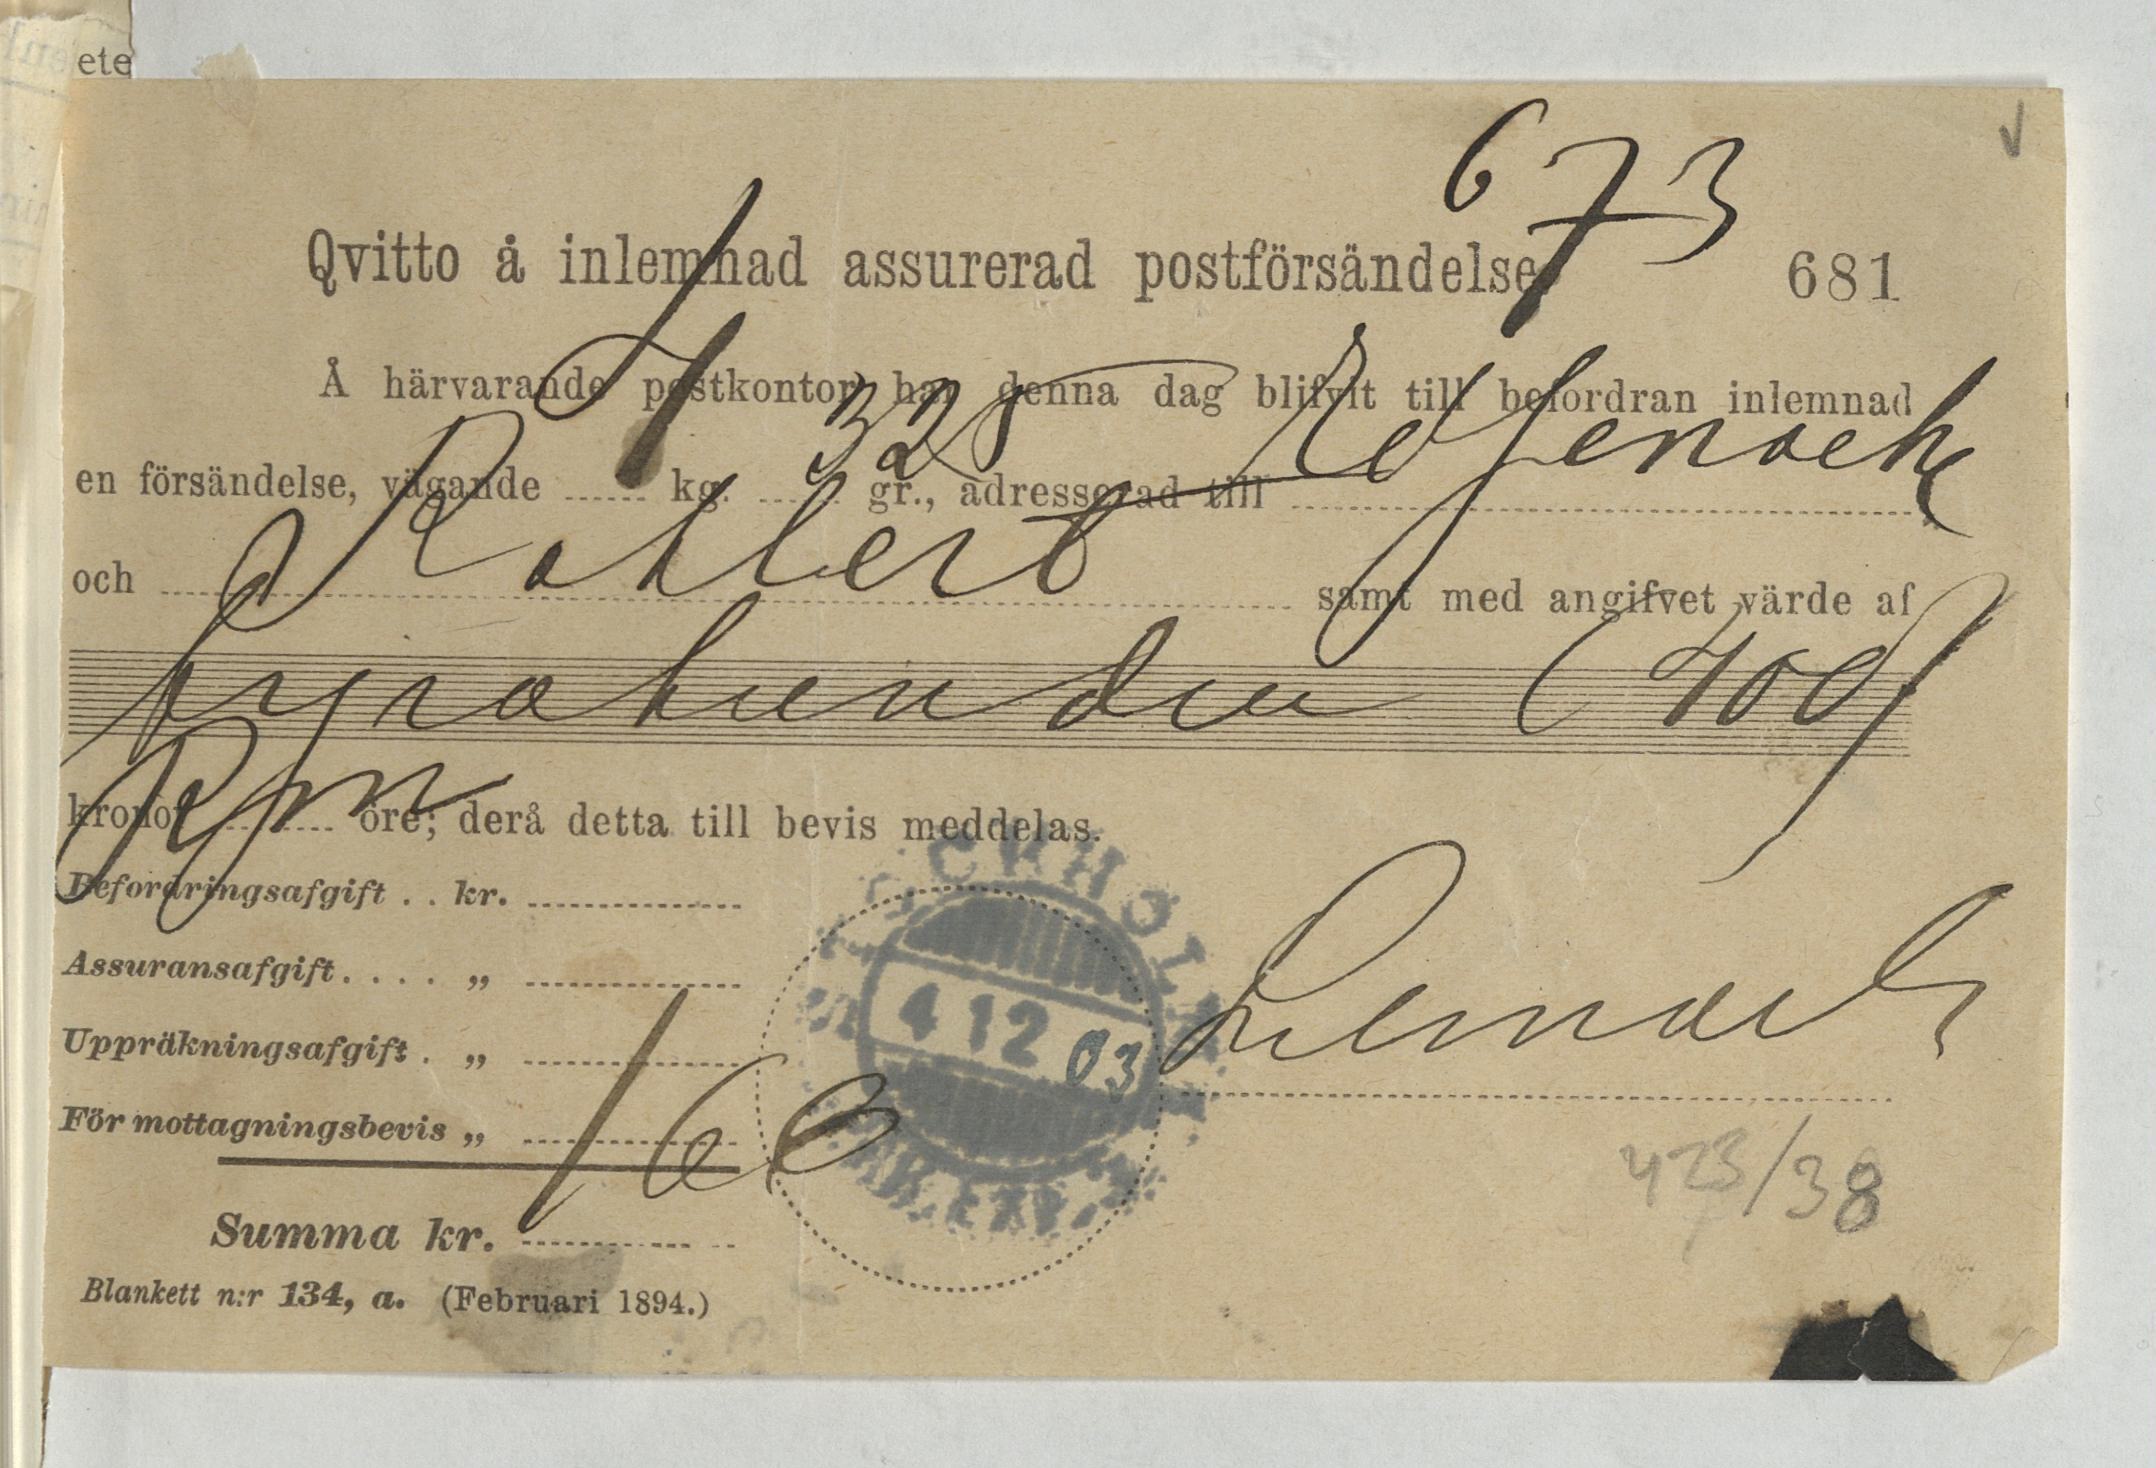 ete
673
Qvitto å inlemnad assurerad postförsändelse 681
Å härvarande postkontor har denna dag blifvit till befordran inlemnad
en försändelse, vägande 1 kg. 328 gr., adresserad till
och samt med angifvet värde af
fyrahundra (400)
Rm
kronor öre; derå detta till bevis meddelas.
Befordringsafgift . . kr.
Assuransafgift . . . . „
Uppräkningsafgift . „
För mottagningsbevis „
Summa kr. 1 60
4 12 03
423/38
Blankett n:r 134, a. (Februari 1894.)